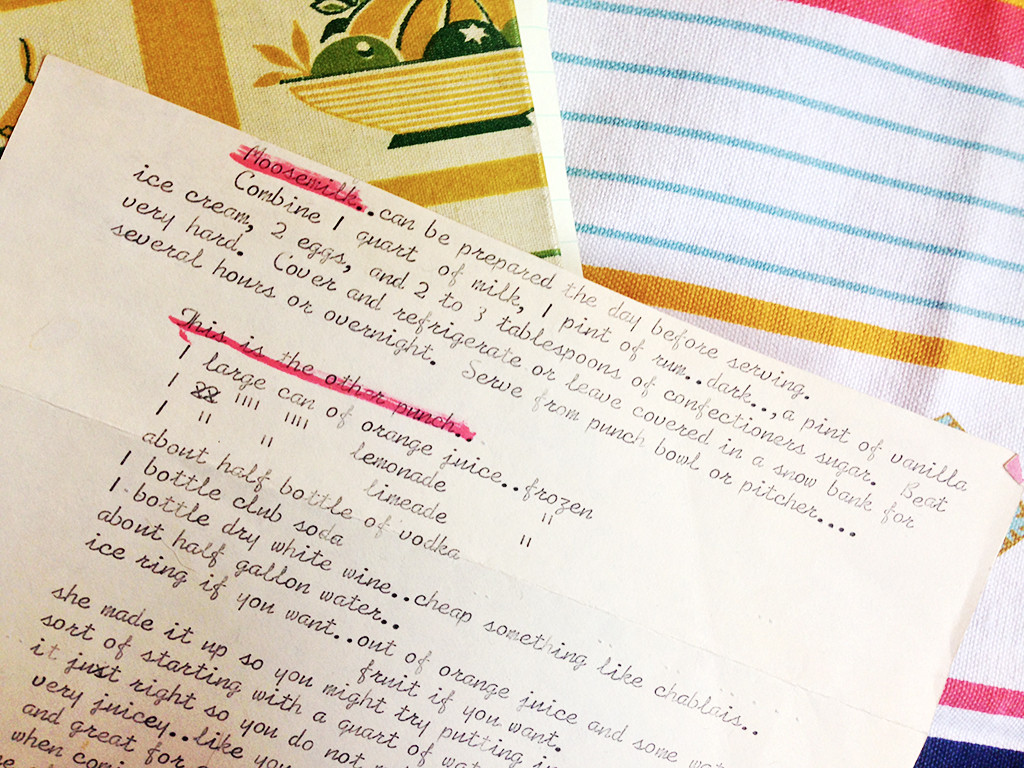 Moosemilk..can be prepared the day before serving.
Combine 1 quart of milk, 1 pint of rum..dark..,a pint of vanilla
ice cream, 2 eggs, and 2 to 3 tablespoons of confectioners sugar. Beat
very hard. Cover and refrigerate or leave covered in a snow bank for
several hours or overnight. Serve from punch bowl or pitcher....
This is the other punch..
1 large can of orange juice..frozen
1 XX "" "" lemonade "
1 " " "" limeade "
about half bottle of vodka
1 bottle club soda
1 bottle dry white wine..cheap something like chablais..
about half gallon water..
ice ring if you want..out of orange juice and some wat
fruit if you want.
she made it up so you might try putting in
sort of starting with a quart of wat
it just right so you do not
very juicey..like you
and great for
when comi